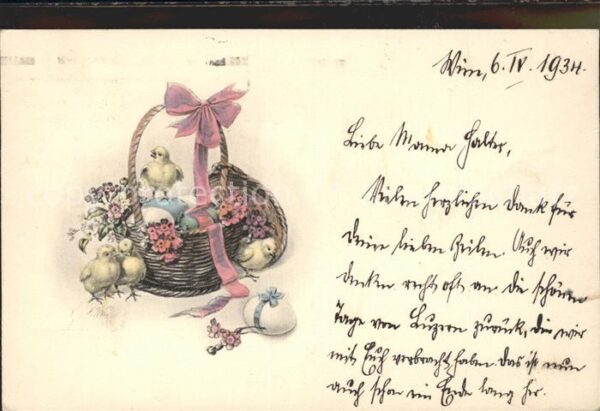 Wien, 6. IV. 1934.
Liebe Mama Halter,
Vielen herzlichen Dank für
Deine lieben Zeilen. Auch wir
denken recht oft an die schönen
Tage von Luzern zurück, die wir
mit Euch verbracht haben. Das ist nun
auch schon ein Ende lang her.